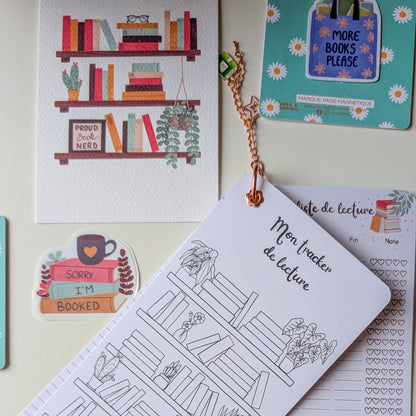 MORE
BOOKS
PLEASE
MARQUE-PAGE MAGNÉTIQUE
PROUD
Book
NERD
SORRY
I'M
BOOKED
Mon tracker
de lecture
liste de lecture
Fin
Note